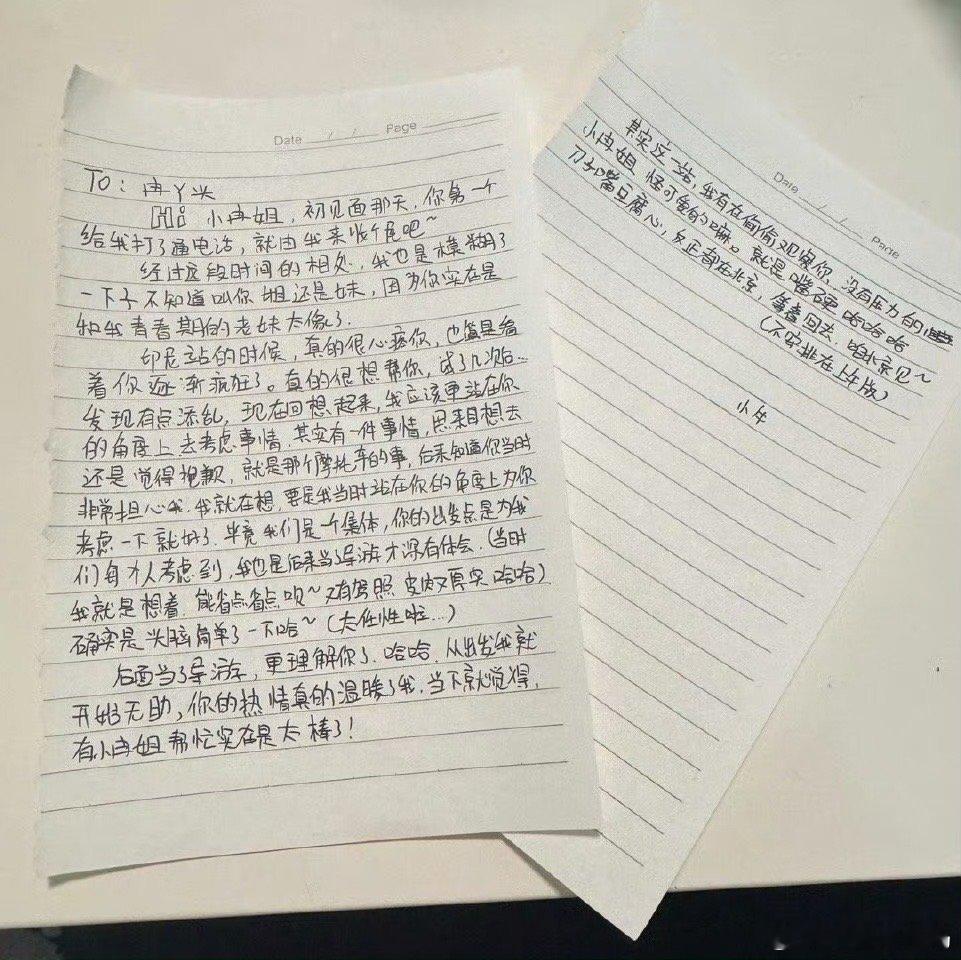 Date / / Page
TO：冉丫米
Hi 小冉姐，初见面那天，你第一个
给我打了通电话，就由我来收个尾吧~
经过这段时间的相处，我也是模糊了
一下子不知道叫你姐还是妹，因为你实在是
和我青春期的老妹太像了.
印尼站的时候，真的很心疼你，也算是看
着你逐渐疯狂了。真的很想帮你，试了几次后...
发现有点添乱，现在回想起来，我应该更站在你
的角度上去考虑事情.其实有一件事情，思来想去
还是觉得抱歉，就是那个摩托车的事，后来知道你当时
非常担心我.我就在想，要是我当时站在你的角度上为你
考虑一下就好了.毕竟我们是一个集体，你的出发点是为我
们每个人考虑到，我也是后来当了导游才深有体会.(当时
我就是想着，能省点省点呗~又有驾照 皮肉又厚实 哈哈)
确实是头脑简单了一下哈~（太任性啦...）
后面当了导游，更理解你了.哈哈.从出发我就
开始无助，你的热情真的温暖了我.当下就觉得，
有小冉姐帮忙实在是太棒了！
Date / / Page
其实这一站，我有在偷偷观察你，没有压力的
小冉姐 怪可爱的嘛。就是嘴硬 哈哈哈
刀子嘴豆腐心，反正都在北京，等着回去，咱北京见~
（不安排在上车版）
小年